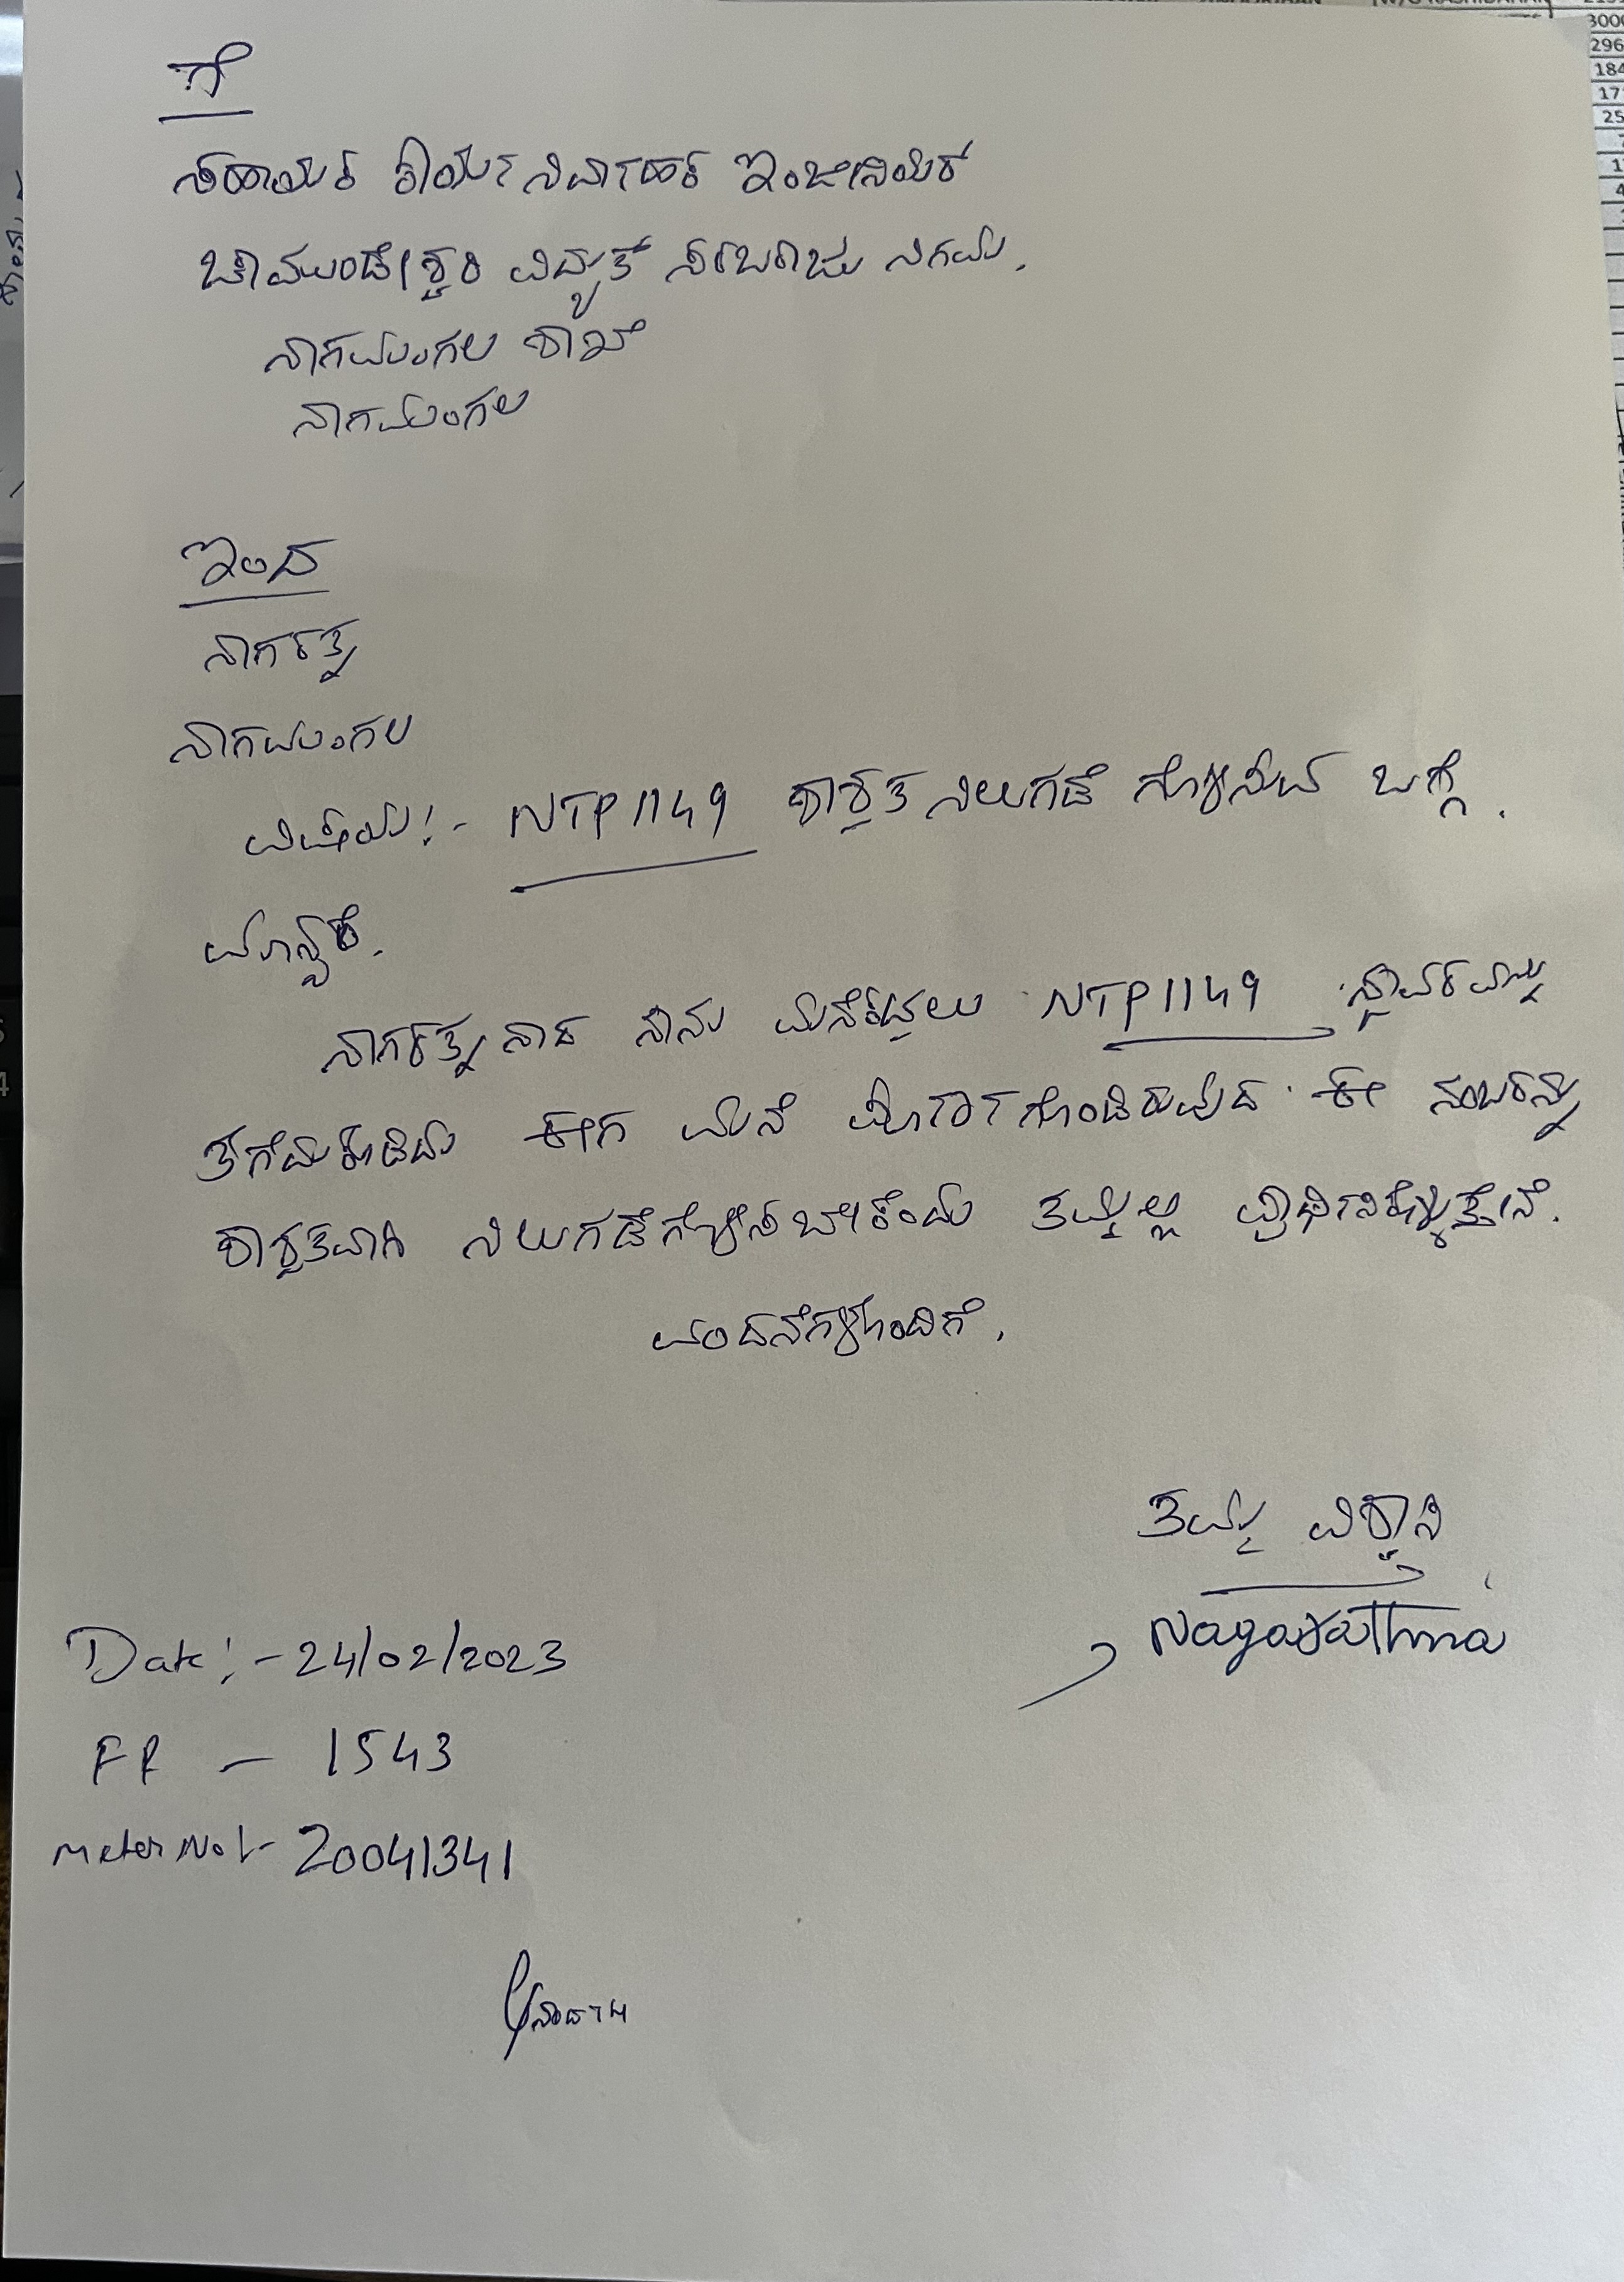 ಗೆ
ಸಹಾಯಕ ಕಾರ್ಯನಿರ್ವಾಹಕ ಇಂಜೀನಿಯರ್
ಚಾಮುಂಡೇಶ್ವರಿ ವಿದ್ಯುತ್ ಸರಬರಾಜು ನಿಗಮ.
ನಾಗಮಂಗಲ ಶಾಖೆ
ನಾಗಮಂಗಲ
ಇಂದ
ನಾಗರತ್ನ
ನಾಗಮಂಗಲ
ವಿಷಯ:- NTP1149 ಶಾಶ್ವತ ನಿಲುಗಡೆ ಗೊಳಿಸುವ ಬಗ್ಗೆ.
ಮಾನ್ಯರೆ.
ನಾಗರತ್ನ ನಾದ ನಾನು NTP1149 ಸ್ಥಾವರವನ್ನು
ಈಗ ಮನೆ ಈ ನಂಬರನ್ನು
ಶಾಶ್ವತವಾಗಿ ನಿಲುಗಡೆಗೊಳಿಸಬೇಕೆಂದು ತಮ್ಮಲ್ಲಿ ಪ್ರಾರ್ಥಿಸಿಕೊಳ್ಳುತ್ತೇನೆ.
ವಂದನೆಗಳೊಂದಿಗೆ.
ತಮ್ಮ ವಿಶ್ವಾಸಿ
Nagarathna
Date:- 24/02/2023
FR - 1543
meter No:- 20041341